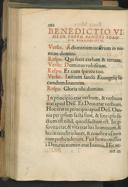 BENEDICTIO VI-
Versic. Adiutorium nostrum in no-
mine domini.
Respo. Qui fecit cælum & terram.
Versic. Dominus vobiscum.
Respo. Et cum spiritu tuo.
Versic. Initium sancti Euangelij se-
cundum Ioannem.
Respo. Gloria tibi domine.
In principio erat verbum, & verbum
erat apud Deum, & Deus erat verbum.
Hoc erat in principio apud Deum. Om-
nia per ipsum facta sunt, & sine ipso
factum est nihil, quod factum est. In ip-
so vita erat, & vita erat lux hominum, &
lux in tenebris lucet, & tenebræ eam
non comprehenderunt. Fuit homo missus
à Deo cui nomen erat Ioannes. Hic ve-